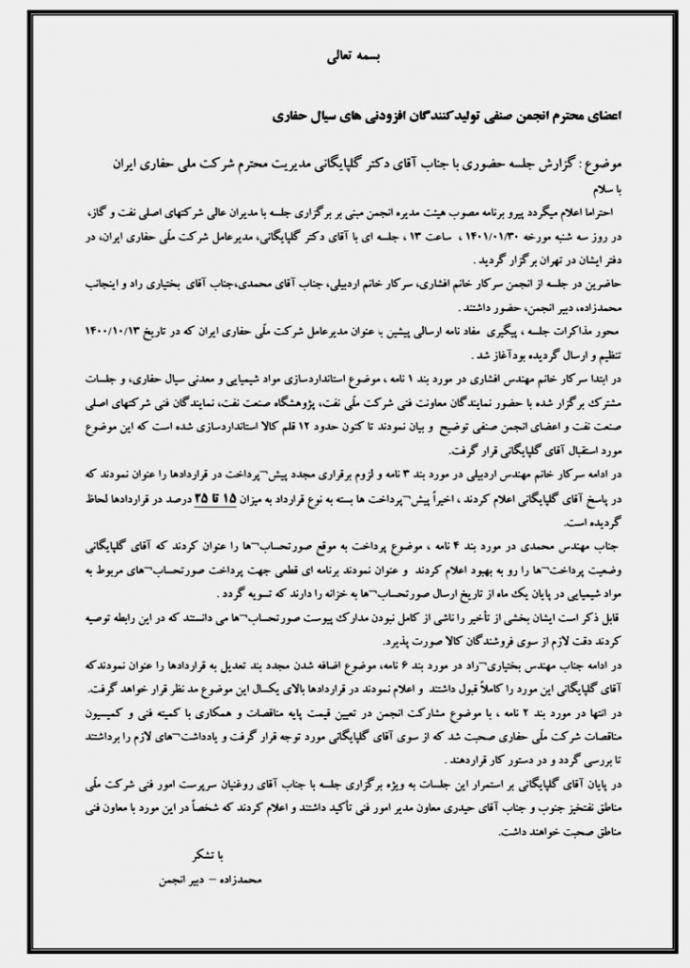 بسمه تعالی
اعضای محترم انجمن صنفی تولیدکنندگان افزودنی های سیال حفاری
موضوع : گزارش جلسه حضوری با جناب آقای دکتر گلپایگانی مدیریت محترم شرکت ملی حفاری ایران
با سلام
احتراما اعلام میگردد پیرو برنامه مصوب هیئت مدیره انجمن مبنی بر برگزاری جلسه با مدیران عالی شرکتهای اصلی نفت و گاز،
در روز سه شنبه مورخه ۱۴۰۱/۰۱/۳۰ ، ساعت ۱۳ ، جلسه ای با آقای دکتر گلپایگانی، مدیرعامل شرکت ملّی حفاری ایران، در
دفتر ایشان در تهران برگزار گردید .
حاضرین در جلسه از انجمن سرکار خانم افشاری، سرکار خانم اردبیلی، جناب آقای محمدی،جناب آقای بختیاری راد و اینجانب
محمدزاده، دبیر انجمن، حضور داشتند .
محور مذاکرات جلسه ، پیگیری مفاد نامه ارسالی پیشین با عنوان مدیرعامل شرکت ملّی حفاری ایران که در تاریخ ۱۴۰۰/۱۰/۱۳
تنظیم و ارسال گردیده بودآغاز شد .
در ابتدا سرکار خانم مهندس افشاری در مورد بند ۱ نامه ، موضوع استانداردسازی مواد شیمیایی و معدنی سیال حفاری، و جلسات
مشترک برگزار شده با حضور نمایندگان معاونت فنی شرکت ملّی نفت، پژوهشگاه صنعت نفت، نمایندگان فنی شرکتهای اصلی
صنعت نفت و اعضای انجمن صنفی توضیح و بیان نمودند تا کنون حدود ۱۲ قلم کالا استانداردسازی شده است که این موضوع
مورد استقبال آقای گلپایگانی قرار گرفت.
در ادامه سرکار خانم مهندس اردبیلی در مورد بند ۳ نامه و لزوم برقراری مجدد پیش¬پرداخت در قراردادها را عنوان نمودند که
در پاسخ آقای گلپایگانی اعلام کردند ، اخیراً پیش¬پرداخت ها بسته به نوع قرارداد به میزان ۱۵ تا ۲۵ درصد در قراردادها لحاظ
گردیده است.
جناب مهندس محمدی در مورد بند ۴ نامه ، موضوع پرداخت به موقع صورتحساب¬ها را عنوان کردند که آقای گلپایگانی
وضعیت پرداخت¬ها را رو به بهبود اعلام کردند و عنوان نمودند برنامه ای قطعی جهت پرداخت صورتحساب¬های مربوط به
مواد شیمیایی در پایان یک ماه از تاریخ ارسال صورتحساب¬ها به خزانه را دارند که تسویه گردد .
قابل ذکر است ایشان بخشی از تأخیر را ناشی از کامل نبودن مدارک پیوست صورتحساب¬ها می دانستند که در این رابطه توصیه
کردند دقت لازم از سوی فروشندگان کالا صورت پذیرد.
در ادامه جناب مهندس بختیاری¬راد در مورد بند ۶ نامه، موضوع اضافه شدن مجدد بند تعدیل به قراردادها را عنوان نمودندکه
آقای گلپایگانی این مورد را کاملاً قبول داشتند و اعلام نمودند در قراردادها بالای یکسال این موضوع مد نظر قرار خواهد گرفت.
در انتها در مورد بند ۲ نامه ، با موضوع مشارکت انجمن در تعیین قیمت پایه مناقصات و همکاری با کمیته فنی و کمیسیون
مناقصات شرکت ملّی حفاری صحبت شد که از سوی آقای گلپایگانی مورد توجه قرار گرفت و یادداشت¬های لازم را برداشتند
تا بررسی گردد و در دستور کار قراردهند .
در پایان آقای گلپایگانی بر استمرار این جلسات به ویژه برگزاری جلسه با جناب آقای روغنیان سرپرست امور فنی شرکت ملّی
مناطق نفتخیز جنوب و جناب آقای حیدری معاون مدیر امور فنی تأکید داشتند و اعلام کردند که شخصاً در این مورد با معاون فنی
مناطق صحبت خواهند داشت.
با تشکر
محمدزاده – دبیر انجمن